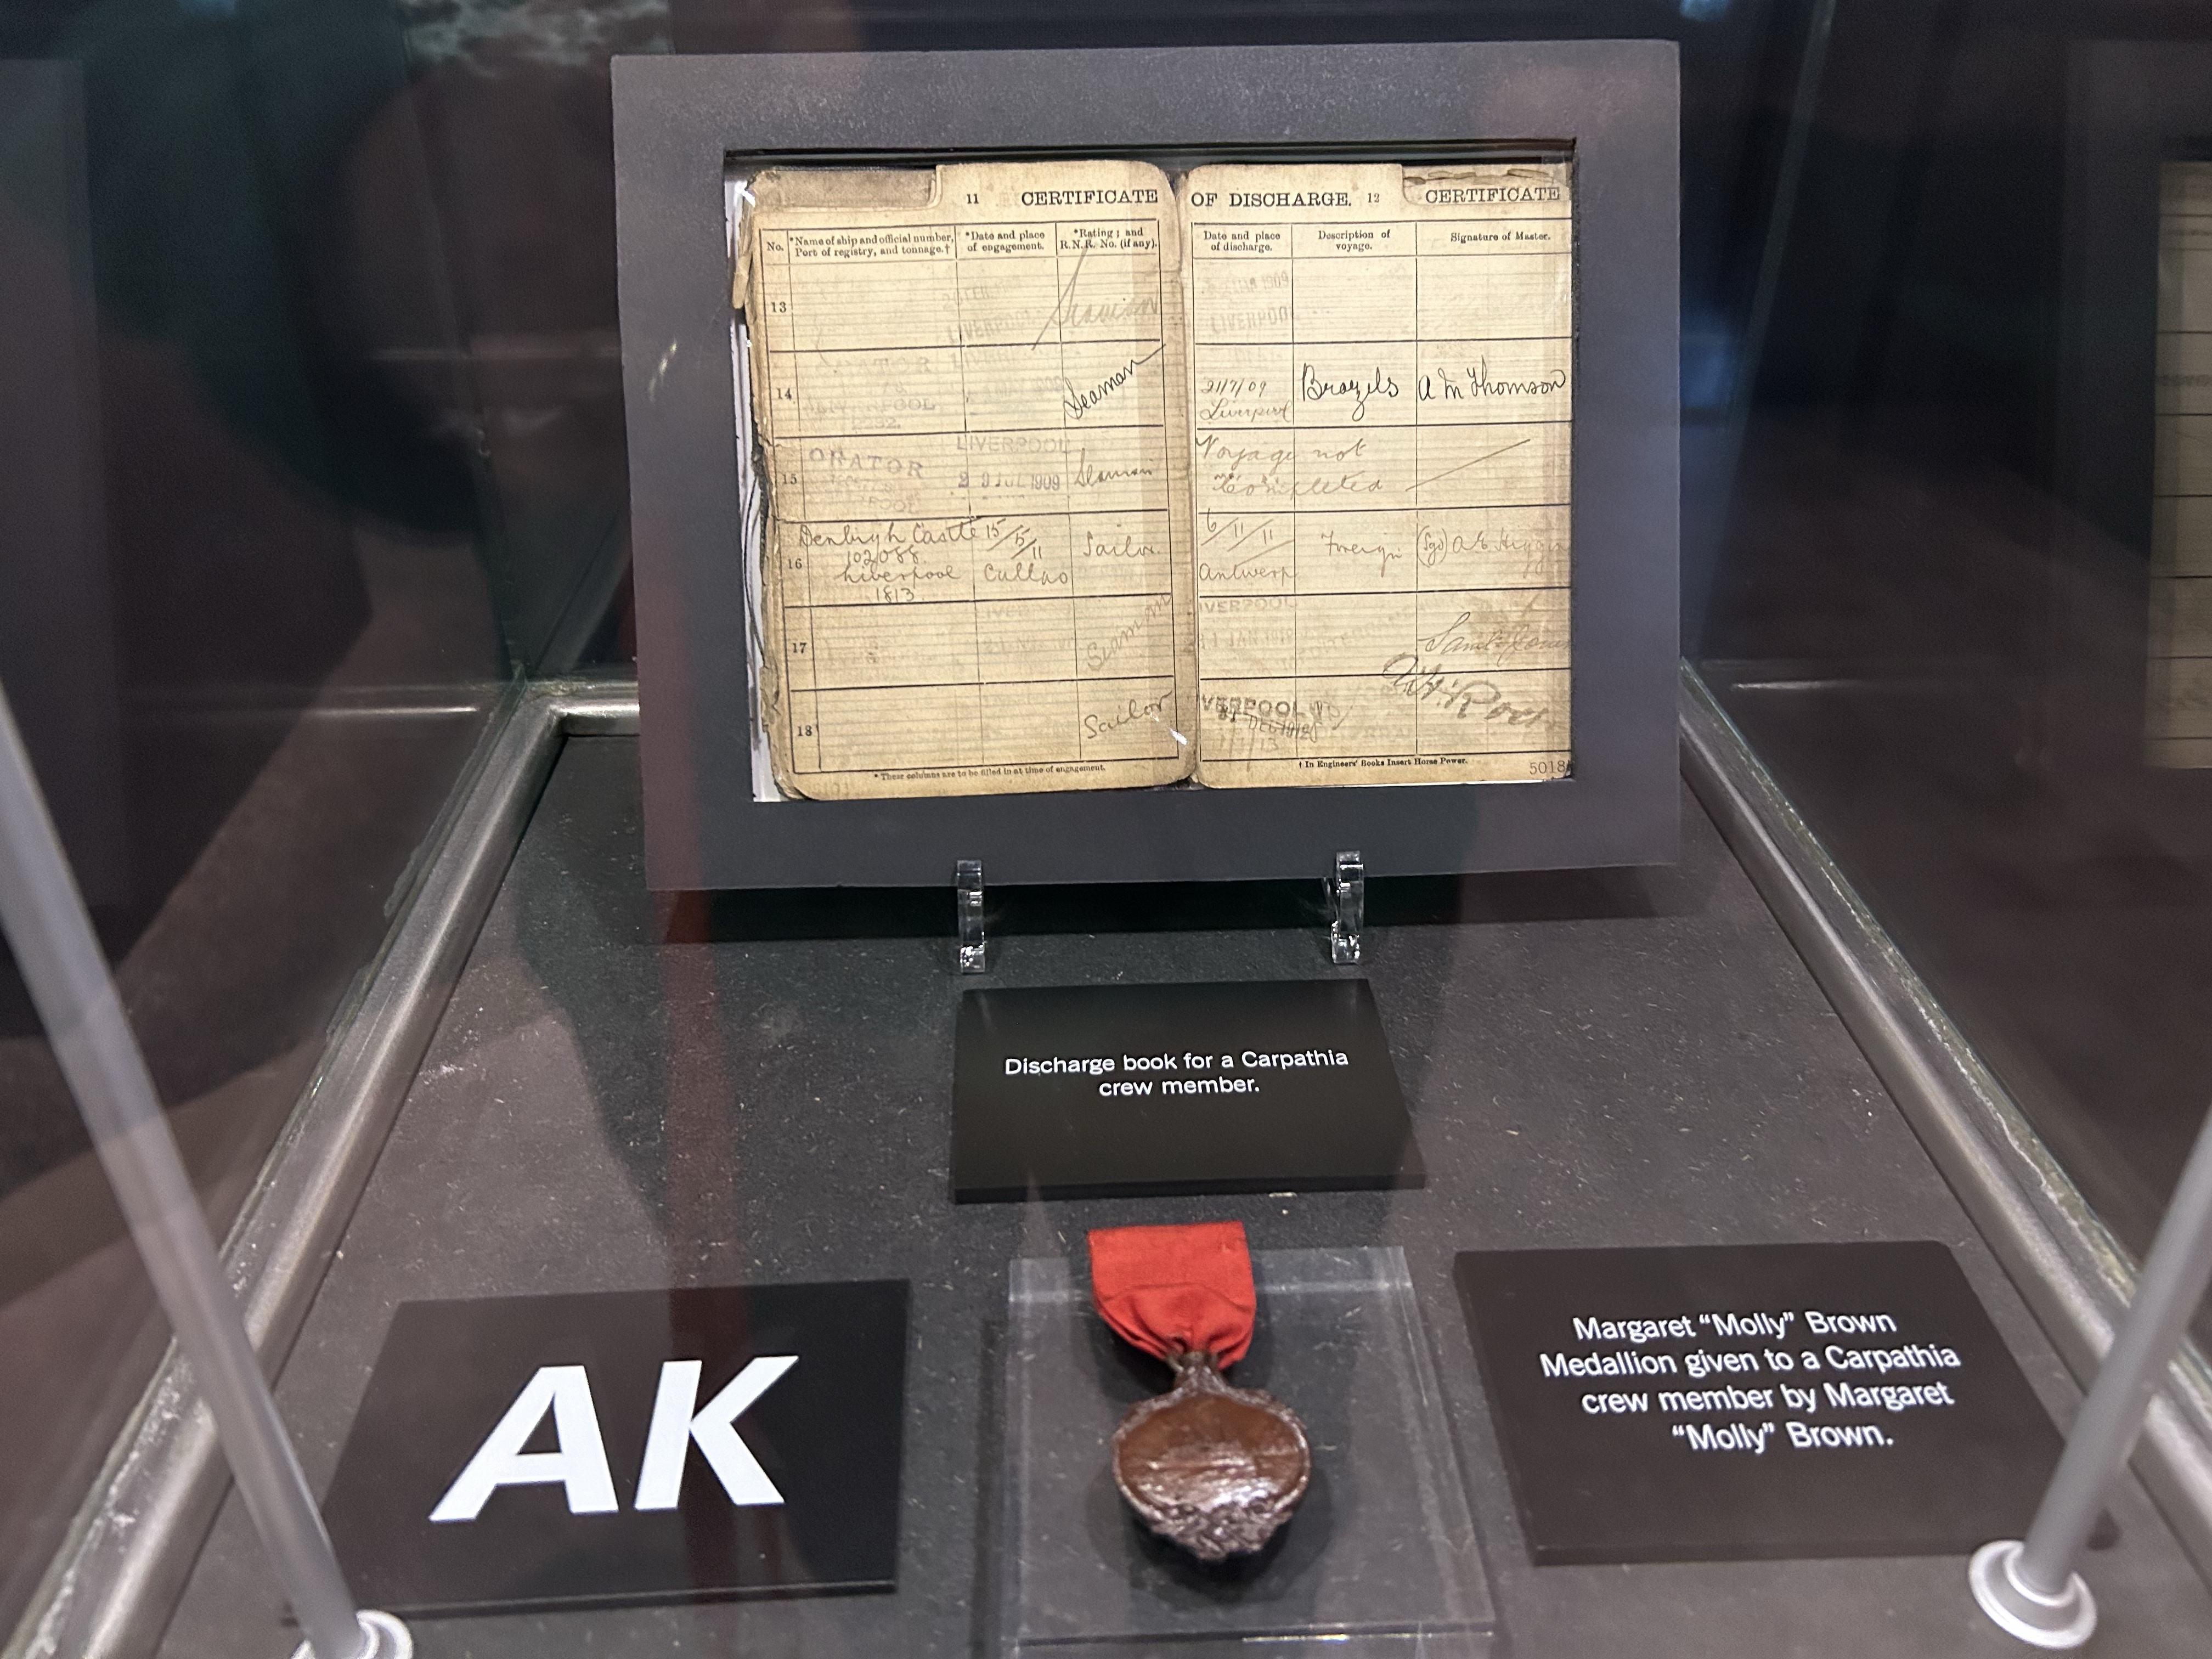 11 CERTIFICATE OF DISCHARGE. 12 CERTIFICATE
No.
*Name of ship and official number,
Port of registry, and tonnage.†
*Date and place
of engagement.
*Rating; and
R.N.R. No. (if any).
Date and place
of discharge.
Description of
voyage.
Signature of Master.
13
LIVERPOOL
Seaman
1909
LIVERPOOL
14
Seaman
21/7/09
Liverpool
Brazils
A M Thomson
15
ORATOR
LIVERPOOL
JUL 1909
Seaman
Voyage not
Completed
16
Denbigh Castle
102088
Liverpool
1813
15/5/11
Callao
Sailor
6/11/11
Antwerp
Foreign
(Sgd)
17
Seaman
LIVERPOOL
18
Sailor
VERPOOL
* These columns are to be filled in at time of engagement.
† In Engineers' Books Insert Horse Power.
5018
Discharge book for a Carpathia
crew member.
AK
Margaret “Molly” Brown
Medallion given to a Carpathia
crew member by Margaret
“Molly” Brown.